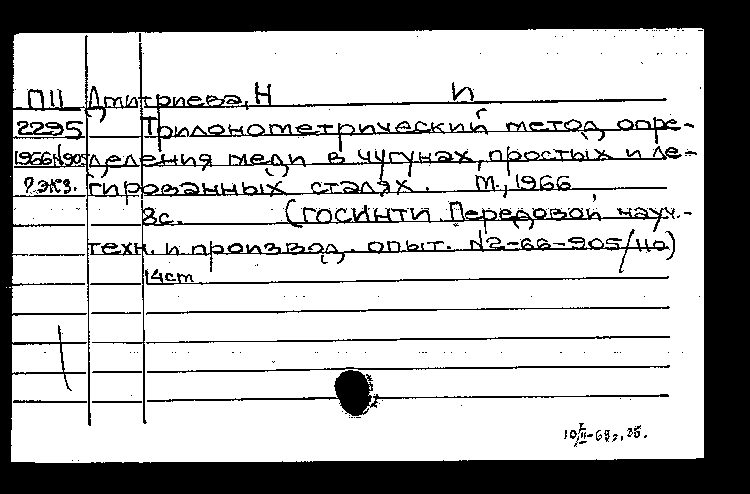 П11 Дмитриева, Н И
2295 Трилонометрический метод опре-
1966 N905 деления меди в чугунах, простых и ле-
2 экз. гированных сталях. М., 1966
8с. (ГОСИНТИ. Передовой науч.-
техн. и производ. опыт. N2-66-905/110)
14cm